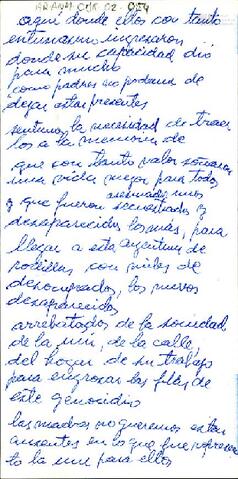 aqui donde ellos con tanto
entusiasmo ingresaron
donde su capacidad dió
para mucho
como padres no podemos de
dejar estar presentes
sentimos la necesidad de traer
los a la memoria de
que con tanto valor soñaron
una vida mejor para todos
asesinados unos
y que fueron secuestrados y
desaparecidos los más, para
llegar a esta Argentina de
rodillas con miles de
desocupados, los nuevos
desaparecidos
arrebatados de la sociedad
de la uni, de la calle,
del hogar de su trabajo
para engrozar las filas de
este genosidio
las madres no queremos estar
ausentes en lo que fue y represen
to la uni para ellos